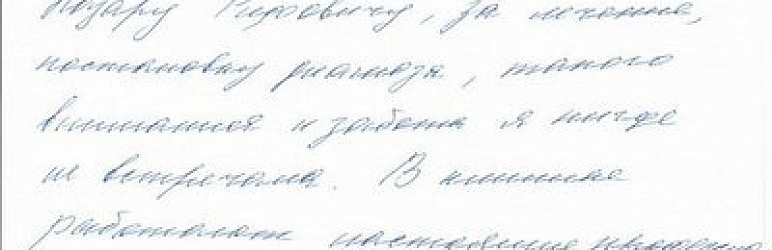 Назару Юрьевичу, за лечение,
постановку диагноза, такого
внимания и заботы я нигде
не встречала. В клинике
работают настоящие